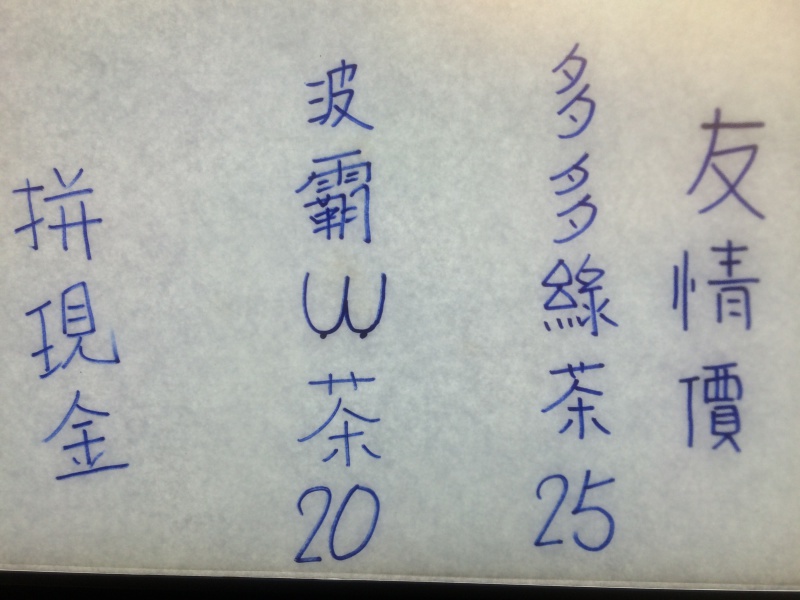 友情價
多多綠茶25
波霸ω茶20
拼現金